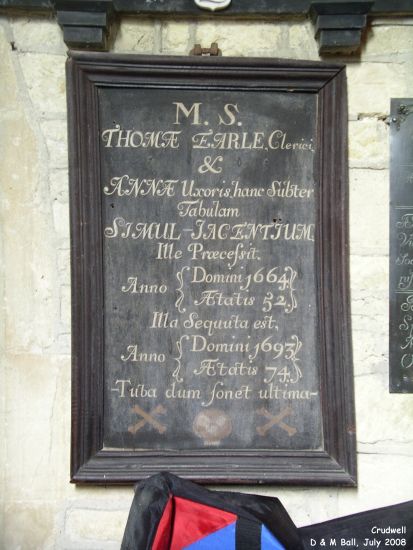 M. S.
THOMÆ EARLE, Clerici,
&
ANNÆ Uxoris, hanc Subter
Tabulam
SIMUL-JACENTIUM
Ille Præcessit,
Anno { Domini 1664 }
{ Ætatis 52, }
Illa Sequuta est,
Anno { Domini 1693 }
{ Ætatis 74, }
-Tuba dum sonet ultima-
Crudwell
D & M Ball, July 2008